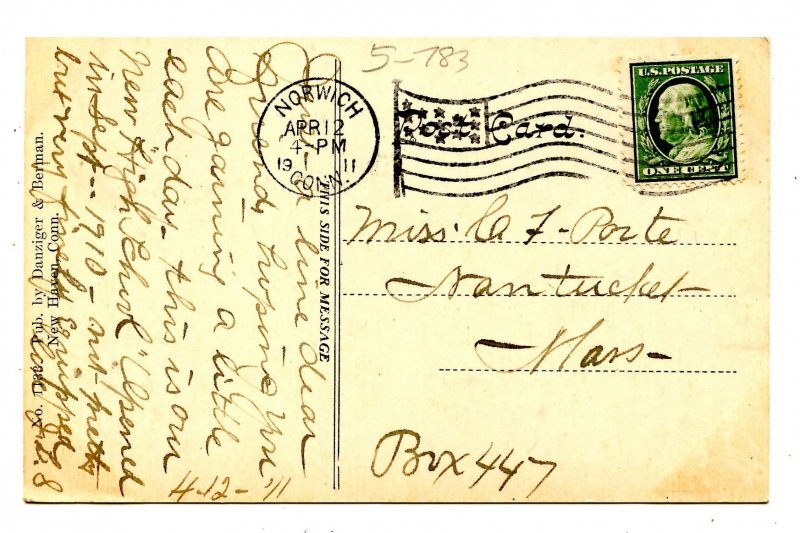 5-783
NORWICH
APR 12
4-PM
1911
CONN.
Post Card.
U.S. POSTAGE
ONE CENT
THIS SIDE FOR MESSAGE
Just a line dear
friend, hoping you
are gaining a little
each day - this is our
New "High School" Opened
in Sept - 1910 - and
Equipped
4-12-'11
Miss. C F. Porte
Nantucket
Mass
Box 447
Pub. by Danziger & Berman.
New Haven, Conn.